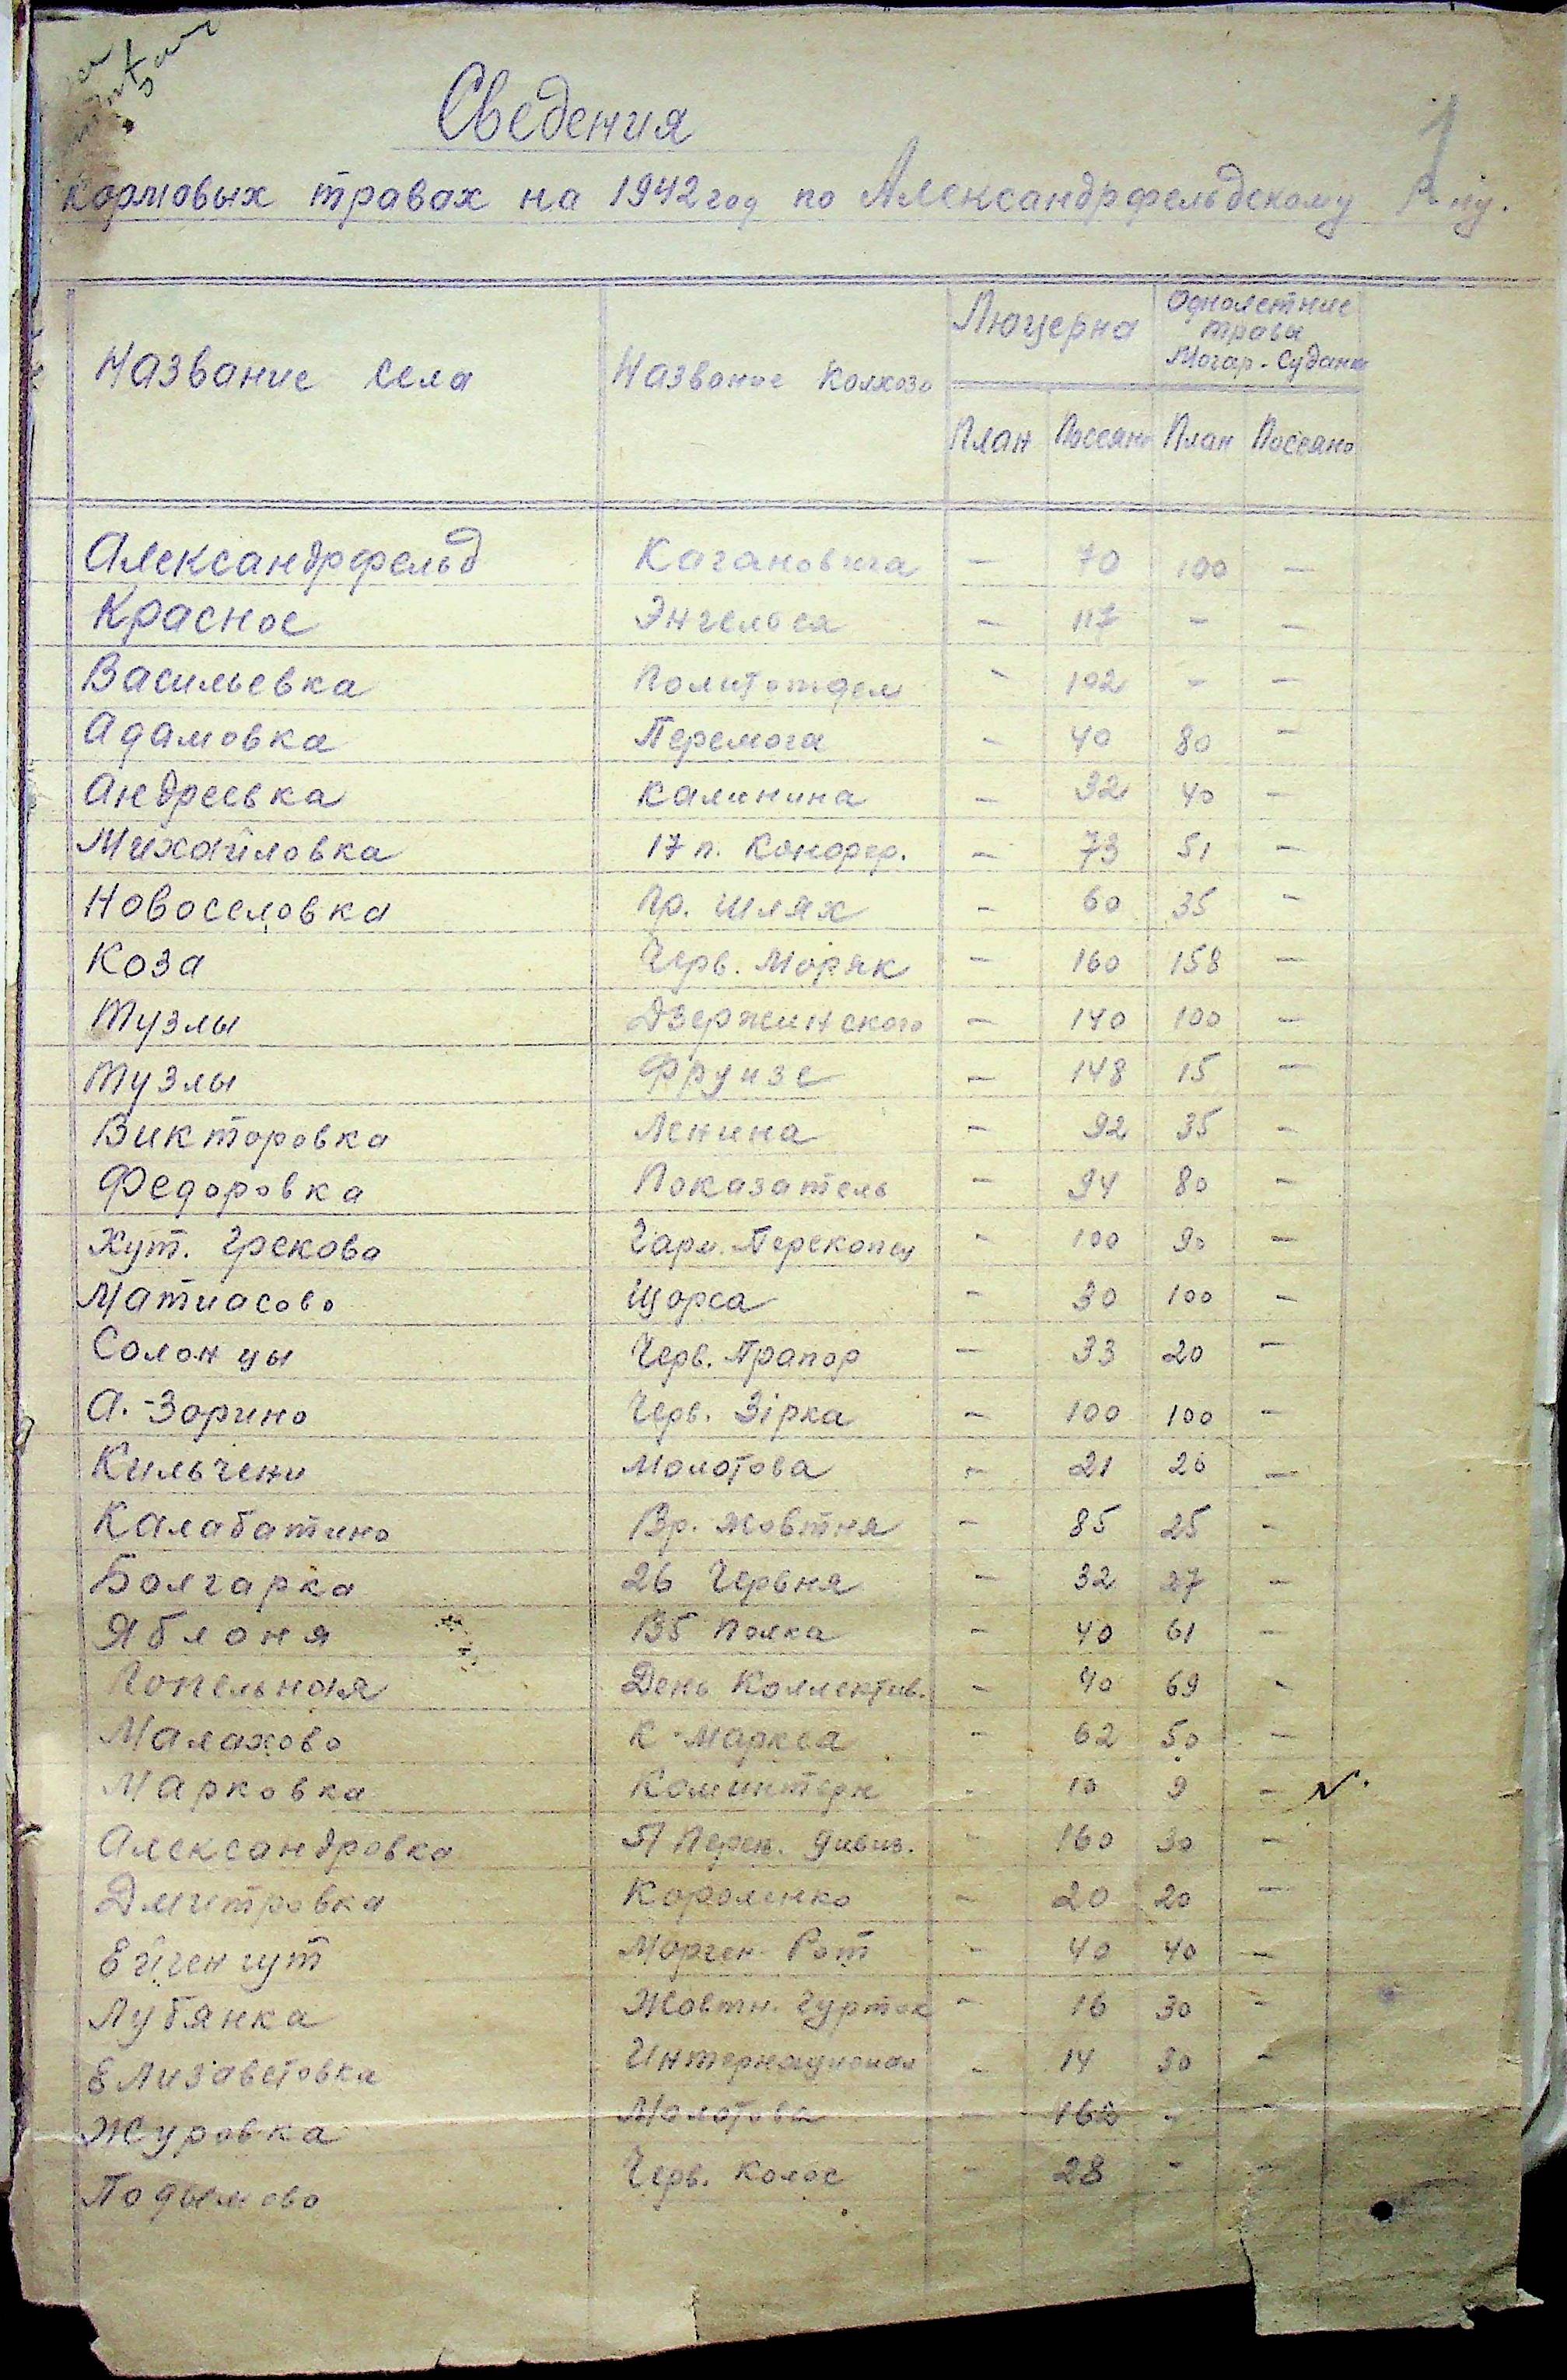 Сведения
кормовых травах на 1942 год по Александрфельдскому Р-ну.
1
Название села Название Колхоза Люцерна Однолетние травы Могар-Судана
План Посеяно План Посеяно
Александрфельд Кагановича - 70 100 -
Красное Энгельса - 117 - -
Васильевка Политотдел - 102 - -
Адамовка Перемога - 40 80 -
Андреевка Калинина - 32 40 -
Михайловка 17 п. Конфер. - 73 51 -
Новоселовка Пр. Шлях - 60 35 -
Коза Черв. Моряк - 160 158 -
Тузлы Дзержинского - 140 100 -
Тузлы Фрунзе - 148 15 -
Викторовка Ленина - 92 35 -
Федоровка Показатель - 94 80 -
Хут. Греково Чарм. Перекопец - 100 90 -
Матиасово Щорса - 30 100 -
Солонцы Черв. Прапор - 33 20 -
А.-Зорино Черв. Зірка - 100 100 -
Кильчени Молотова - 21 26 -
Калабатино Вр. Жовтня - 85 25 -
Болгарка 26 Червня - 32 27 -
Яблоня В5 Полка - 40 61 -
Попельная День Коллектив. - 40 69 -
Малахово К-Маркса - 62 50 -
Марковка Коминтерн - 10 9 - N.
Александровка 51 Перек. дивиз. - 160 30 -
Дмитровка Короленко - 20 20 -
Ейгенгут Морген-Рот - 40 40 -
Лубянка Жовтн. Гурток - 16 30 -
Елизаветовка Интернационал - 14 30 -
Журовка Молотова - 162 - -
Подымово Черв. Колос - 28 - -